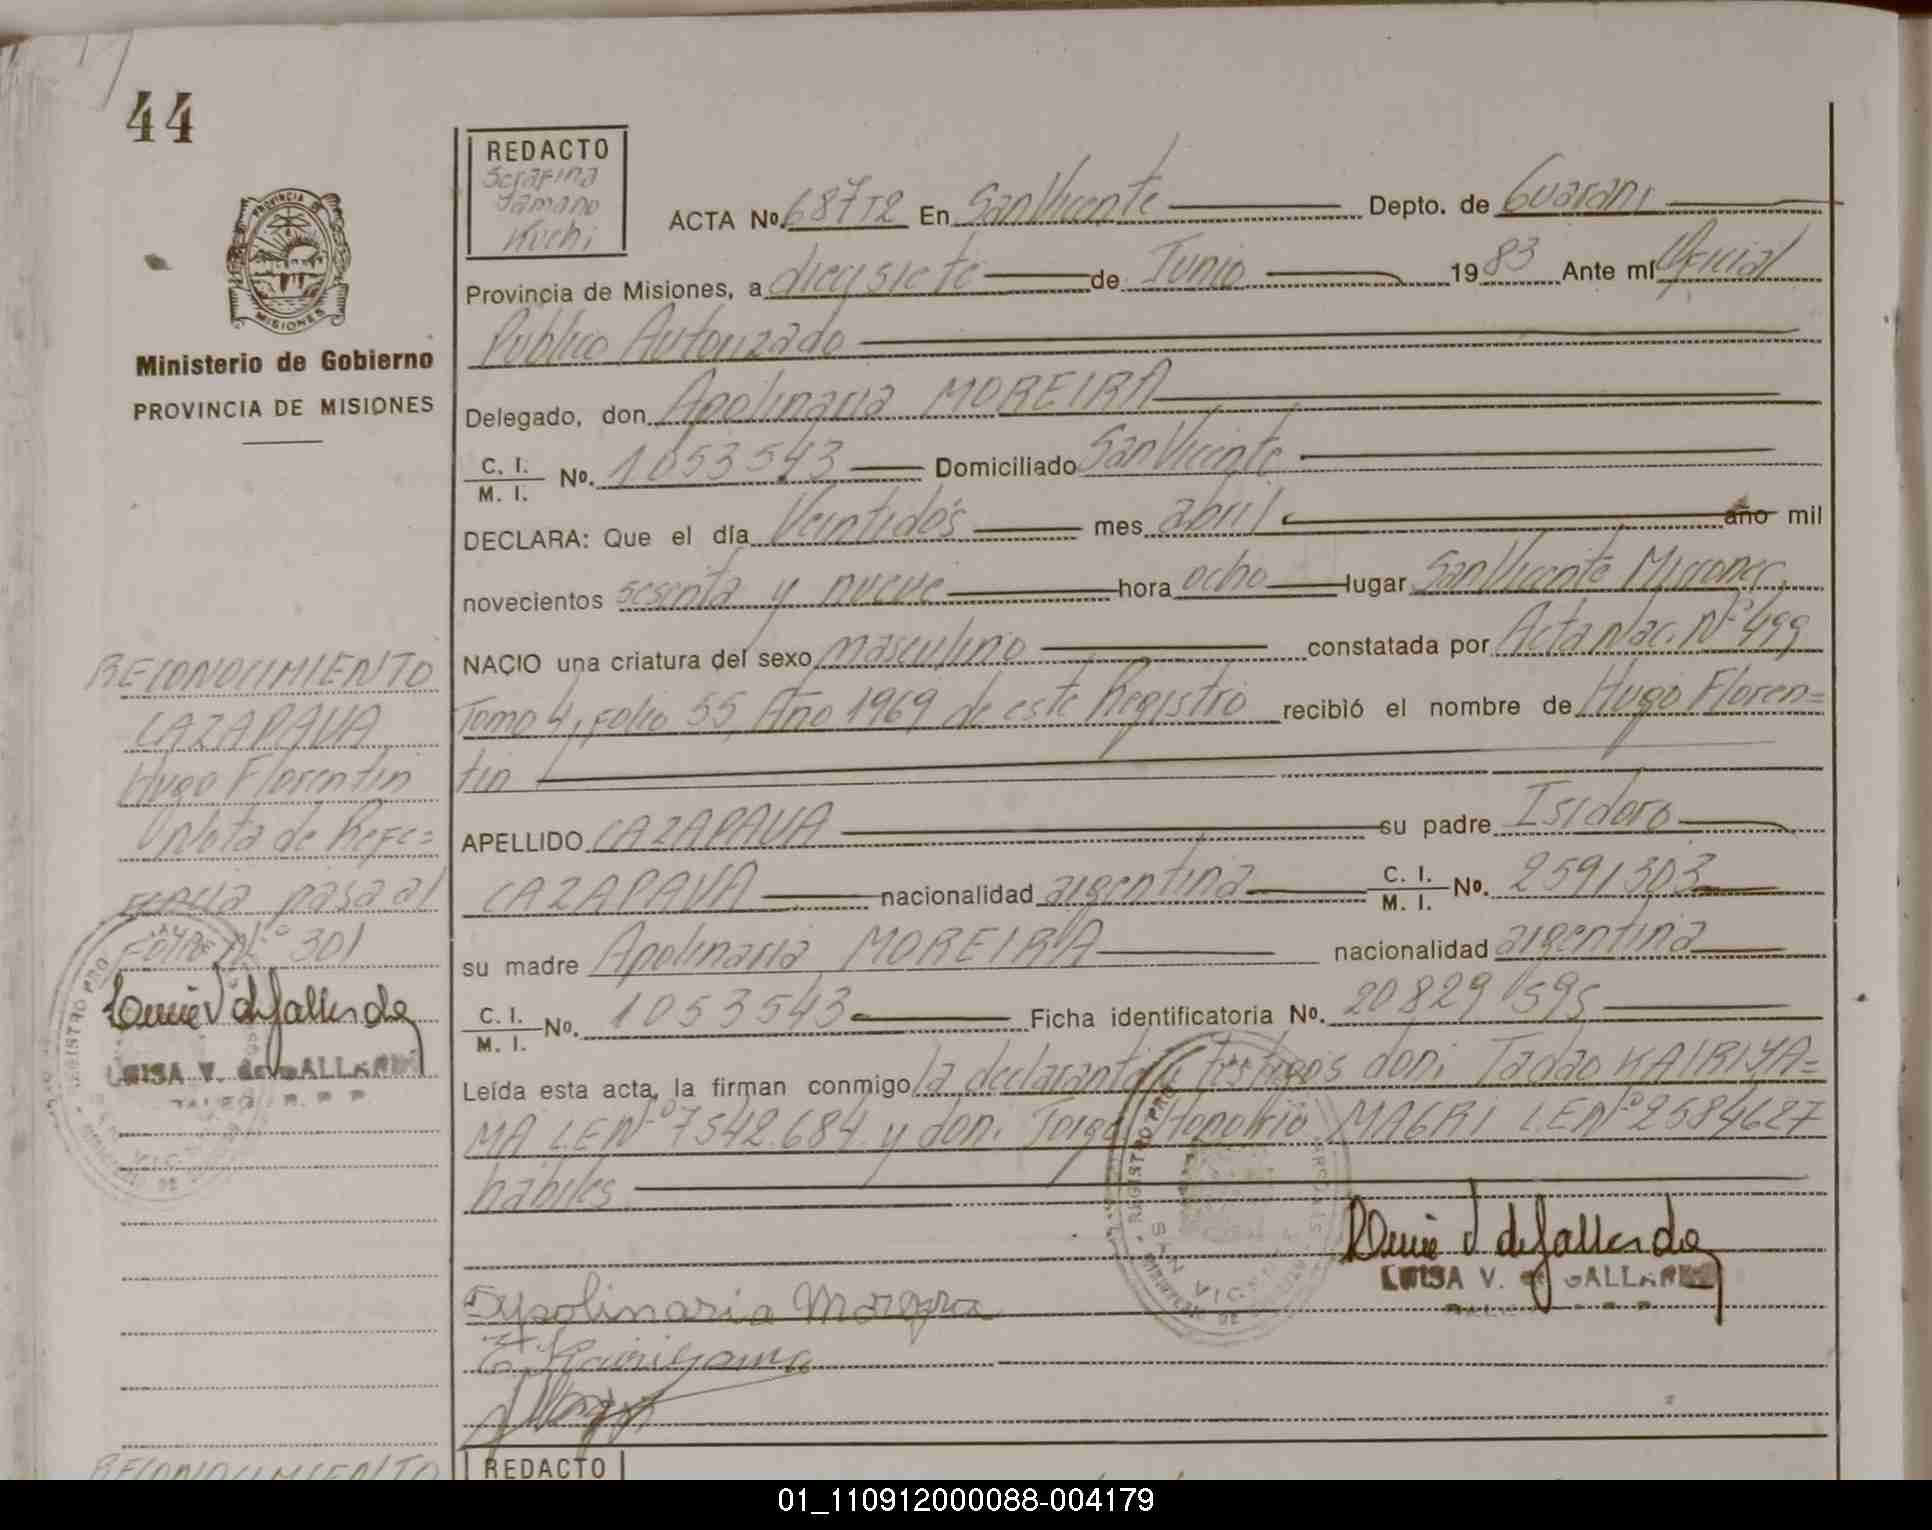 44
REDACTO
Serafina
Yamano
Kuchi
PROVINCIA DE
MISIONES
Ministerio de Gobierno
PROVINCIA DE MISIONES
ACTA No. 687T2 En San Vicente Depto. de Guaraní
Provincia de Misiones, a diecysiete de Junio 1983 Ante mí Oficial
Publico Autorizado
Delegado, don Apolinaria MOREIRA
C. I. / M. I. No. 1053543 Domiciliado San Vicente
DECLARA: Que el día Veintidós mes abril año mil
novecientos sesenta y nueve hora ocho lugar San Vicente Misiones,
NACIO una criatura del sexo masculino constatada por Acta Nac. Nº 499
Tomo 4, folio 55, Año 1969 de este Registro recibió el nombre de Hugo Floren=
tin
APELLIDO CAZAPAVA su padre Isidoro
CAZAPAVA nacionalidad argentina C. I. / M. I. No. 2591303
su madre Apolinaria MOREIRA nacionalidad argentina
C. I. / M. I. No. 1053543 Ficha identificatoria No. 20829595
Leída esta acta, la firman conmigo la declarante y testigos don: Tadao KAIRIYA=
MA LE Nº 7542.684 y don: Jorge Honorio MAGRI LE Nº 2584627
hábiles
LUISA V. de GALLARDO
RECONOCIMIENTO
CAZAPAVA
Hugo Florentin
Nota de Refe=
rencia pasa al
Folio Nº 301
LUISA V. de GALLARDO
RECONOCIMIENTO
REDACTO
01_110912000088-004179